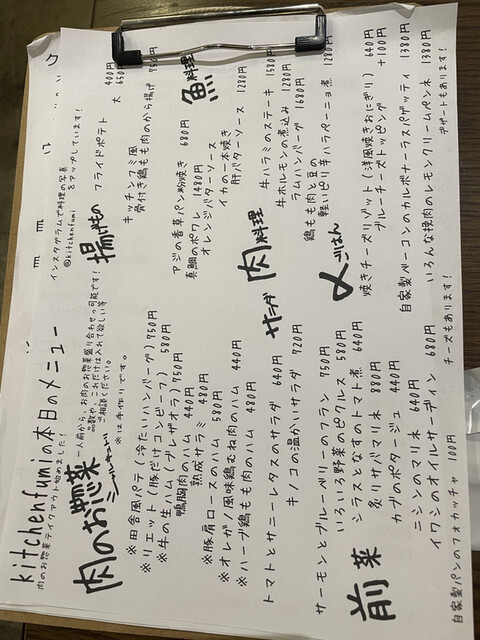 kitchenfumiの本日のメニュー
肉のお惣菜テイクアウト始めました!
インスタグラムで料理の写真
をアップしています!
@kitchenfumi
肉のお惣菜
一人前から、お肉のお惣菜盛り合わせ可能です!
ご相談ください。
※は手作りです。
※田舎風パテ(冷たいハンバーグ) 750円
※リエット(豚だけコンビーフ) 580円
※牛の生ハム(ブレザオラ) 750円
鴨胸肉のハム 440円
熟成サラミ 480円
※豚肩ロースのハム 580円
※オレガノ風味鶏むね肉のハム 440円
※ハーブ鶏もも肉のハム 480円
サラダ
トマトとサニーレタスのサラダ 640円
キノコの温かいサラダ 720円
前菜
サーモンとブルーベリーのフラン 750円
いろいろ野菜のピクルス 580円
シラスとなすのトマト煮 640円
炙りサバマリネ 880円
カブのポタージュ 440円
ニシンのマリネ 640円
イワシのオイルサーデイン 680円
自家製パンのフォカッチャ 100円
チーズもあります!
揚げもの
フライドポテト 400円
大 650円
キッチンフミ風
骨付き鶏もも肉のから揚げ 950円
魚
アジの香草パン粉焼き 680円
真鯛のポワレ 1480円
オレンジバターソース
イカの一本焼き
肝バターソース 1280円
肉料理
牛ハラミのステーキ 1580円
牛ホルモンの煮込み 1280円
ラムハンバーグ 1680円
鶏もも肉と豆の
軽いピリ辛ハラペーニョ煮 1280円
〆ごはん
焼きチーズリゾット(洋風焼きおにぎり) 640円
ブルーチーズトッピング +100円
自家製ベーコンのカルボナーラスパゲッティ 1380円
いろんな挽肉のレモンクリームペンネ 1380円
デザートもあります!